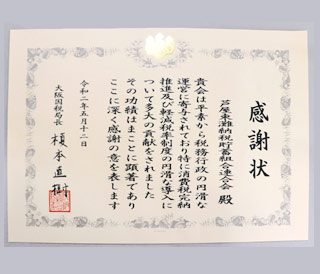 感謝状
芦屋東灘納税貯蓄組合連合会 殿
貴会は平素から税務行政の円滑な
運営に寄与されており特に消費税完納
推進及び軽減税率制度の円滑な導入に
ついて多大の貢献をされました
その功績はまことに顕著であり
ここに深く感謝の意を表します
令和二年五月十二日
大阪国税局長
榎本直樹